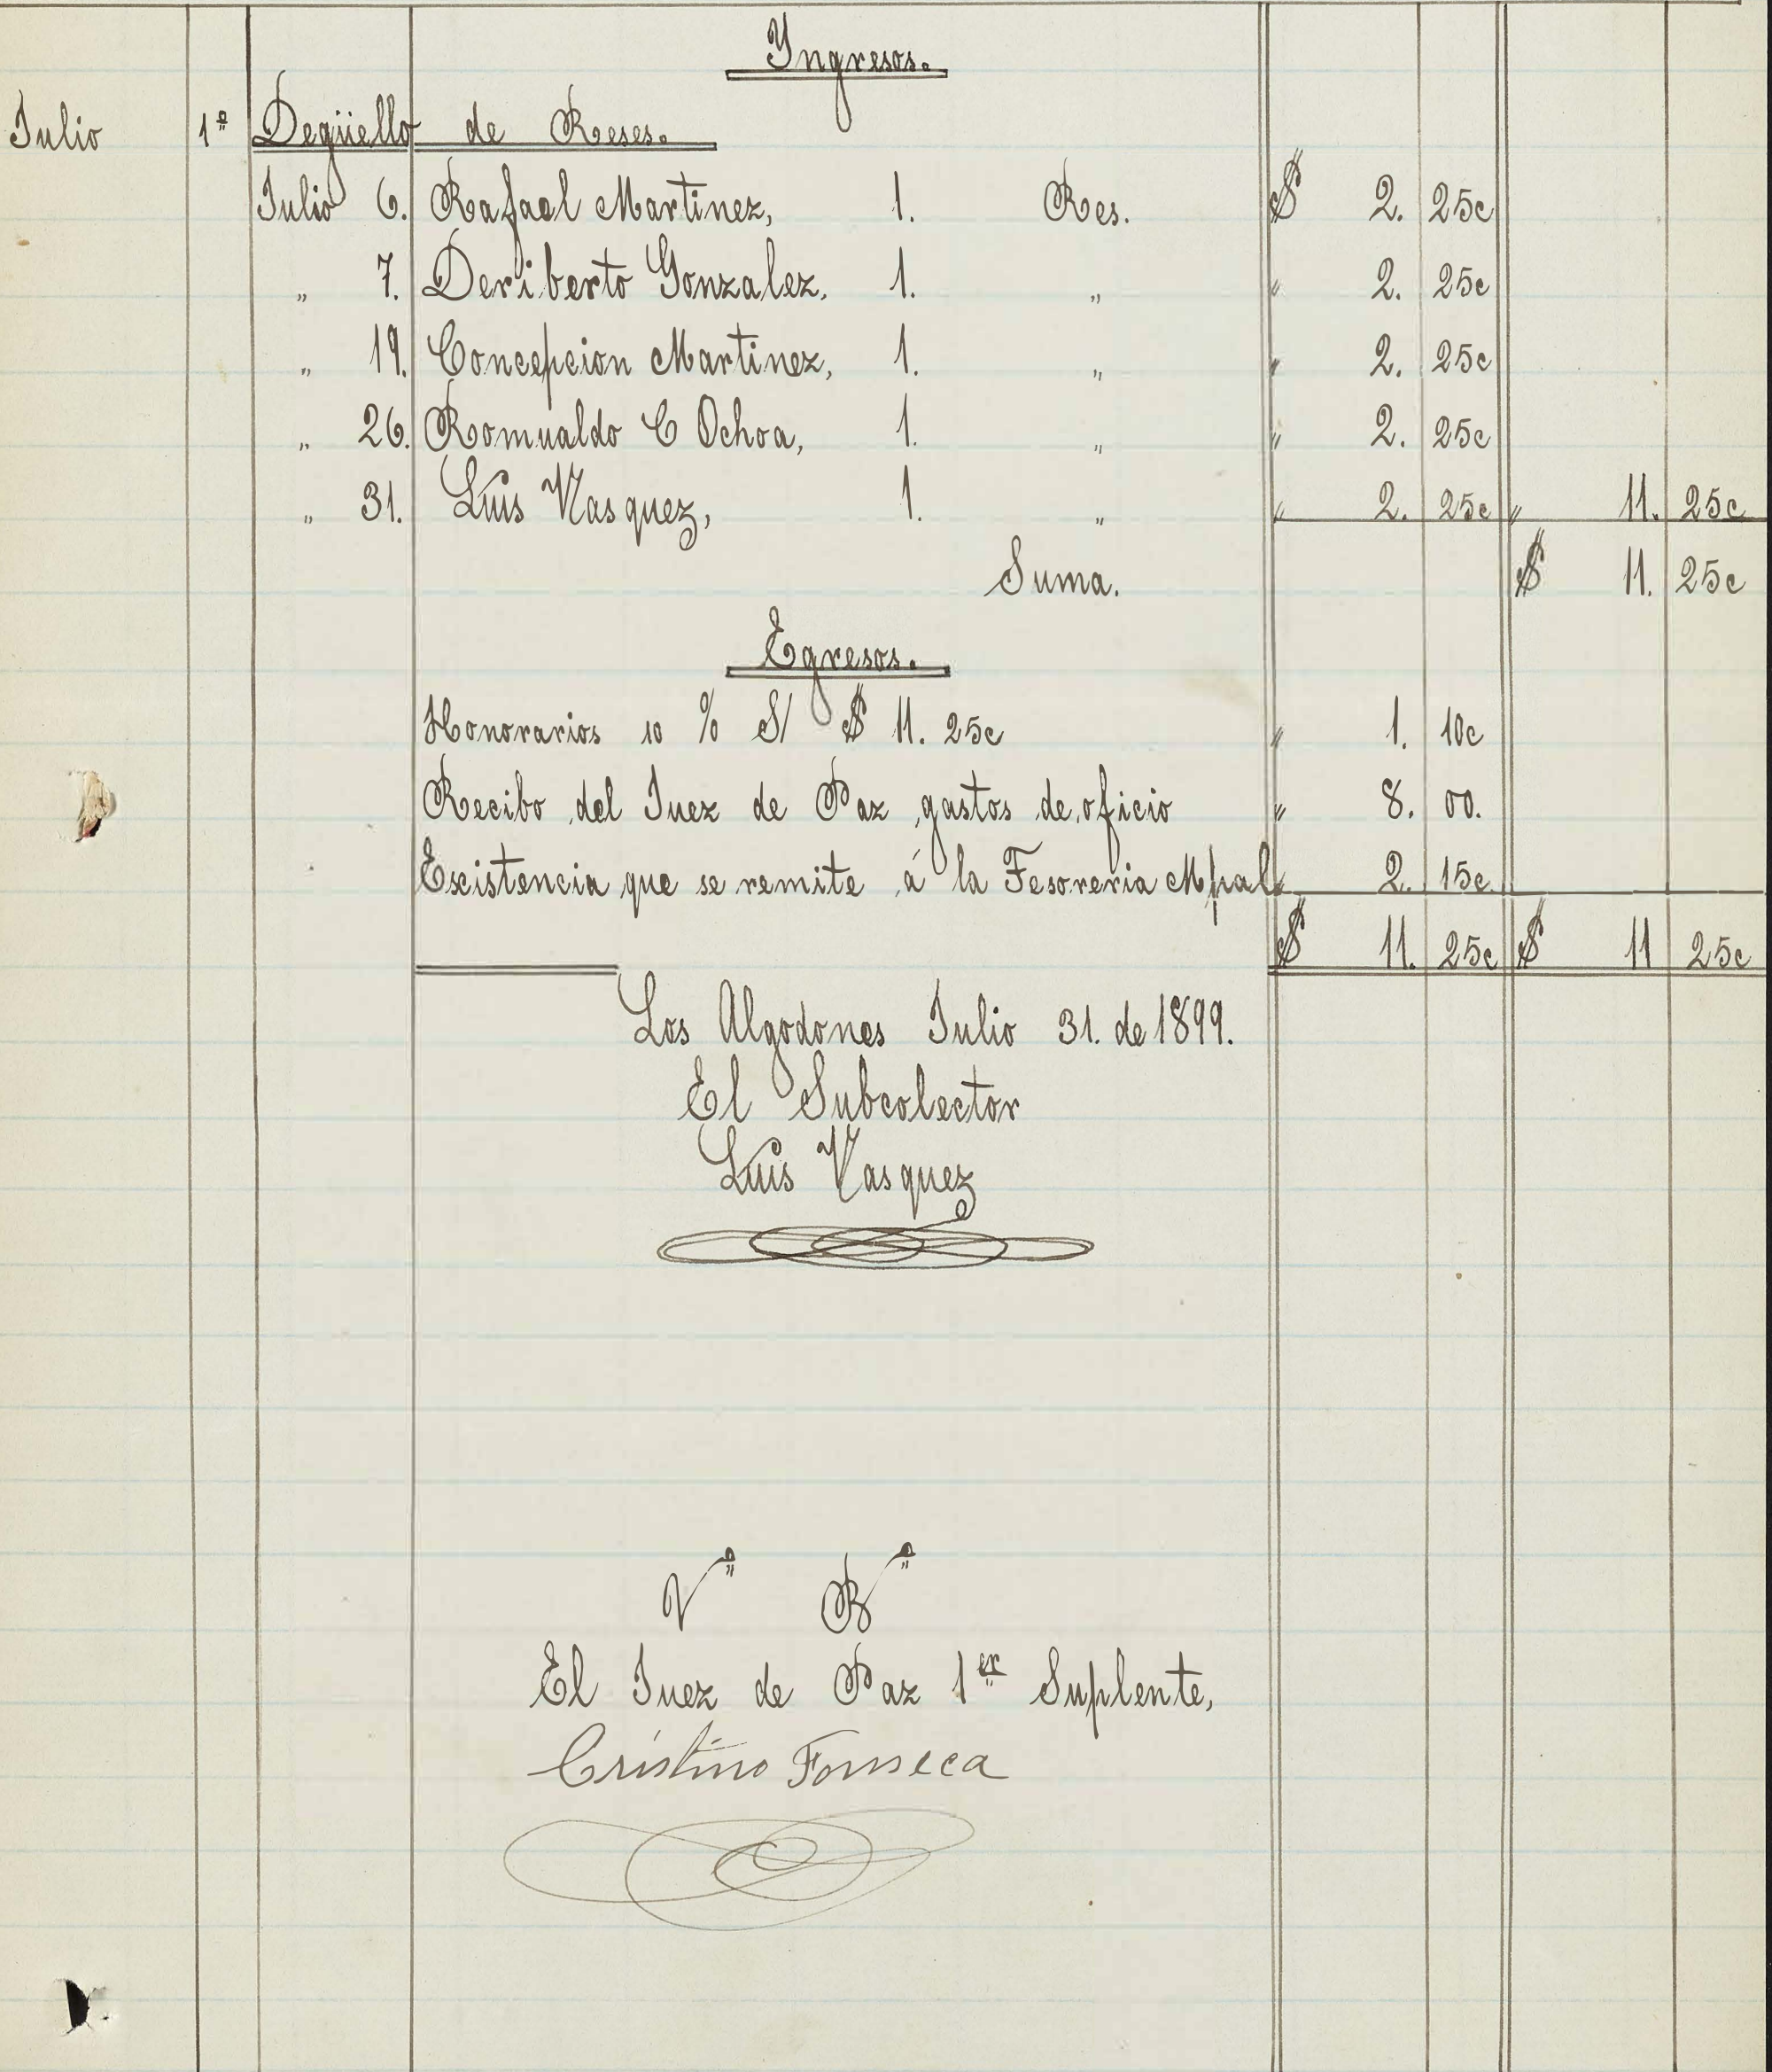 Yngresos.
Julio 1º Degüello de Reses.
Julio 6. Rafael Martinez, 1. Res. $ 2. 25c
„ 7. Deriberto Gonzalez, 1. „ „ 2. 25c
„ 19. Concepcion Martinez, 1. „ „ 2. 25c
„ 26. Romualdo C Ochoa, 1. „ „ 2. 25c
„ 31. Luis Vasquez, 1. „ „ 2. 25c „ 11. 25c
Suma. $ 11. 25c
Egresos.
Honorarios 10 % S/ $ 11. 25c „ 1. 10c
Recibo del Juez de Paz gastos de oficio „ 8. 00.
Escistencia que se remite á la Tesoreria Mpal „ 2. 15c
$ 11. 25c $ 11 25c
Los Algodones Julio 31. de 1899.
El Subcolector
Luis Vasquez
Vº Bº
El Juez de Paz 1er Suplente,
Cristino Fonseca